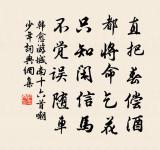 直把春偿酒
都将命乞花
只知闲信马
不觉误随车
韩愈游城南十六首嘲
少年词典网集